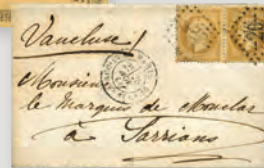 Vaucluse
Monsieur
le Marquis de Monclar
à Sarrians